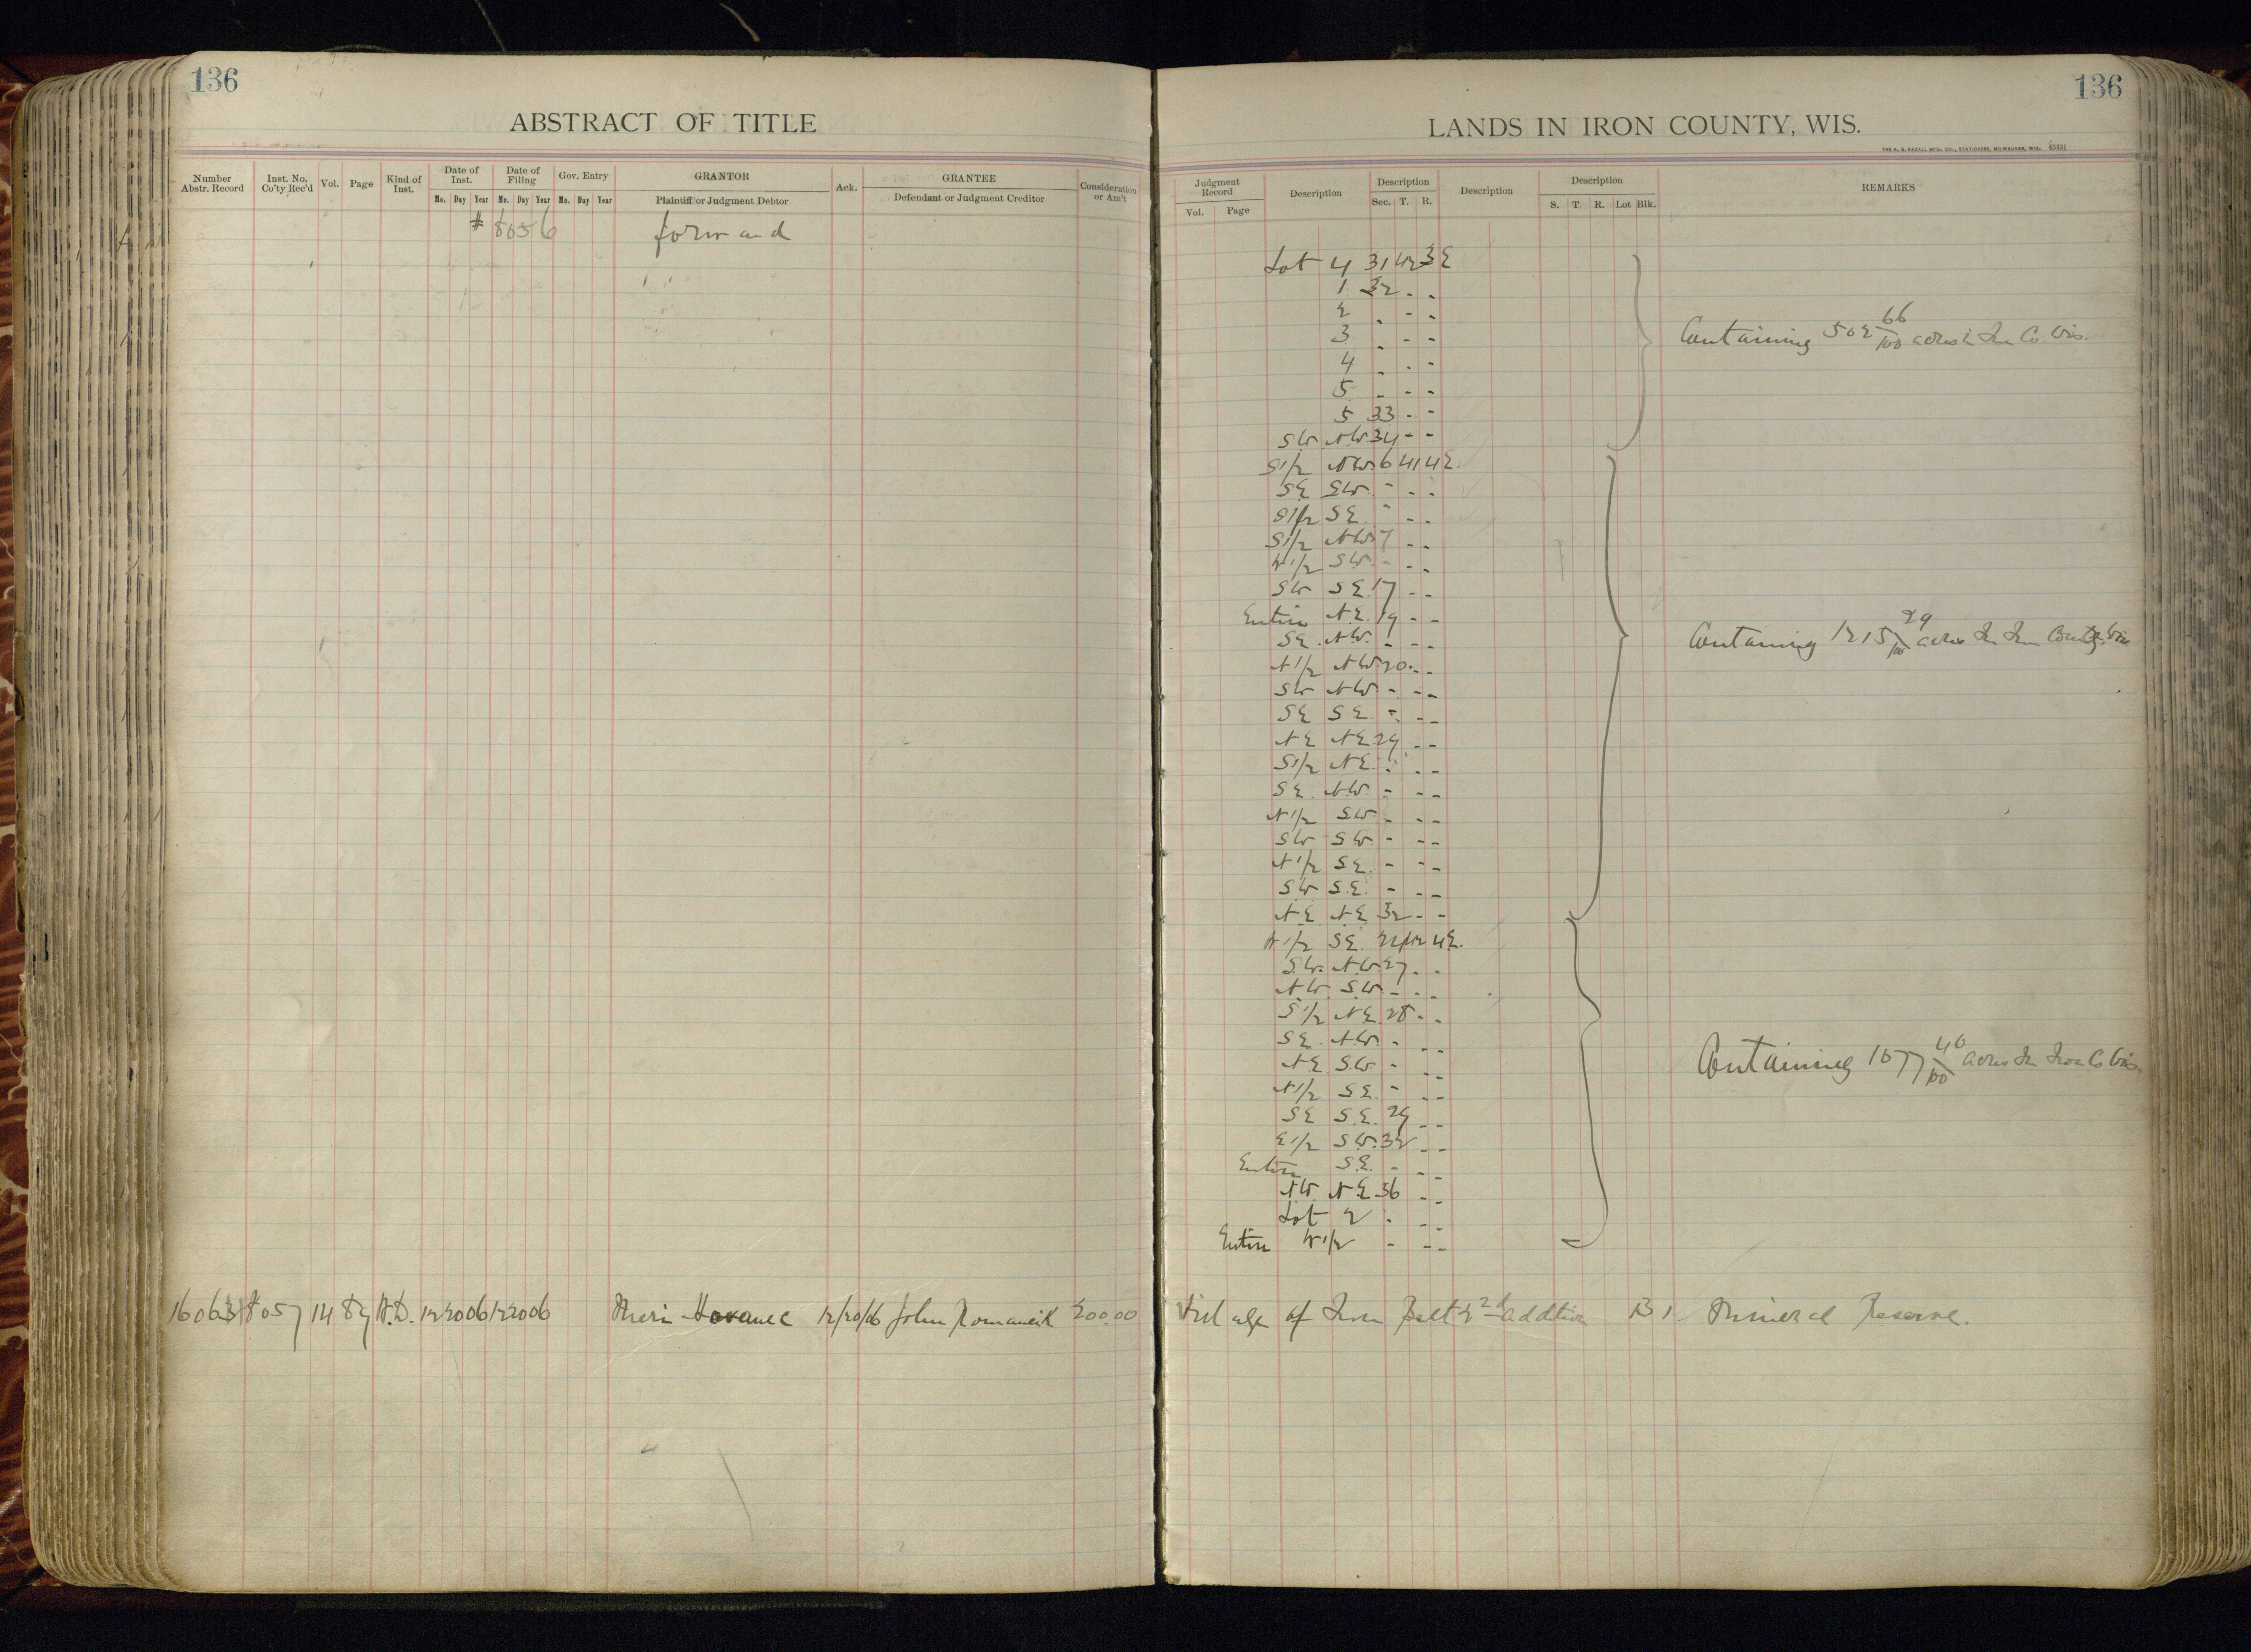 136
ABSTRACT OF TITLE
Number Abstr. Record | Inst. No. Co'ty Rec'd | Vol. | Page | Kind of Inst. | Date of Inst. Mo. Day Year | Date of Filing Mo. Day Year | Gov. Entry Mo. Day Year | GRANTOR Plaintiff or Judgment Debtor | Ack. | GRANTEE Defendant or Judgment Creditor | Consideration or Am't
# 8056 forward
16063 8057 14 89 W.D. 12 20 06 12 20 06 Hovanec 12/20/06 John Romancik 200.00
136
LANDS IN IRON COUNTY, WIS.
THE H. G. RAZALL MFG. CO., STATIONERS, MILWAUKEE, WIS. 45131
Judgment Record Vol. Page | Description | Description Sec. T. R. | Description | Description S. T. R. Lot Blk. | REMARKS
Lot 4 31 42 3E
1 32 - -
2 - - -
3 - - -
Containing 502 66/100 acres in Iron Co. Wis.
4 - - -
5 - - -
5 33 - -
SW NW 34 - -
S1/2 NW 6 41 4E.
SE SW - - -
S1/2 SE - - -
S1/2 NW 7 - -
W1/2 SW - - -
SW SE 17 - -
Entire NE 19 - -
SE NW - - -
Containing 1215 29/100 acres in Iron County Wis
N1/2 NW 20 - -
SW NW - - -
SE SE - - -
NE NE 29 - -
S1/2 NE - - -
SE NW - - -
N1/2 SW - - -
SW SW - - -
N1/2 SE - - -
SW SE - - -
NE NE 32 - -
W1/2 SE 22 42 4E.
SW NW 27 - -
NW SW - - -
S1/2 NE 28 - -
SE NW - - -
NE SW - - -
Containing 1077 40/100 acres in Iron Co Wis.
N1/2 SE - - -
SE SE 29 - -
E1/2 SW 32 - -
Entire SE - - -
NW NE 36 - -
Lot 2 - - -
Entire W1/2 - - -
Village of Iron Belt 2nd addition B 1 Mineral Reserve.